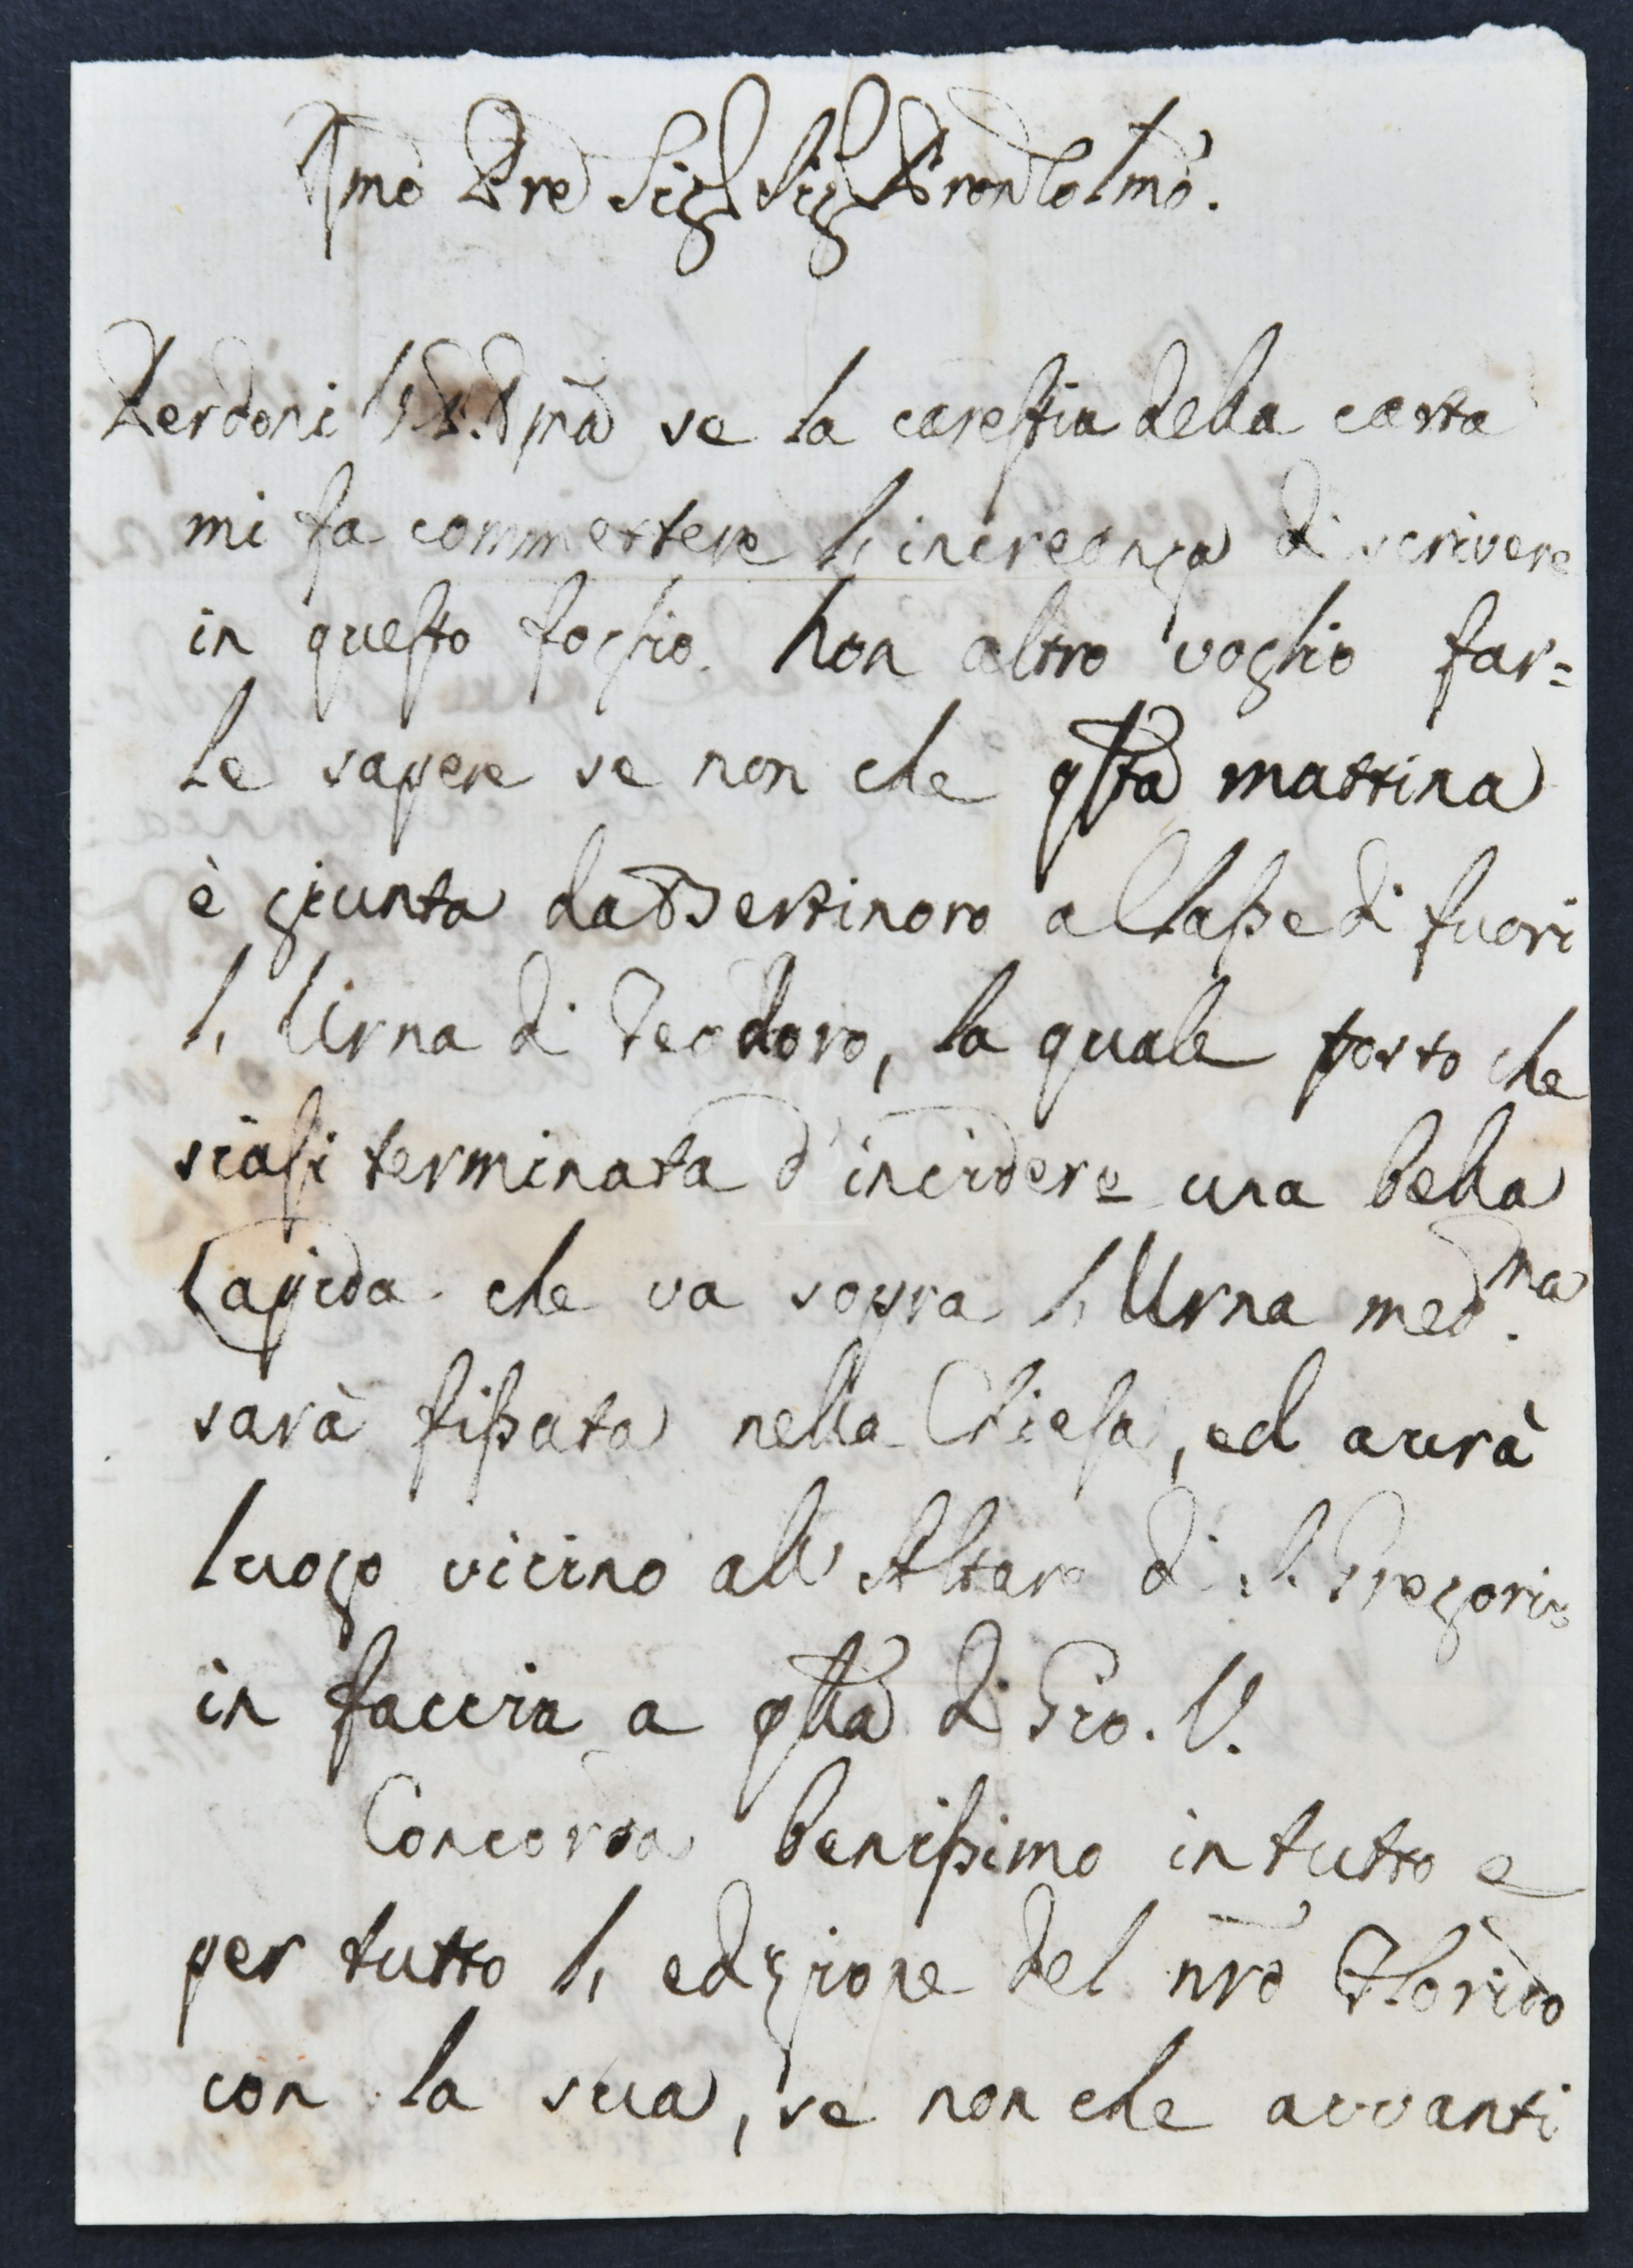 Illmo Sig Sig Pron Colmo.
Perdoni V.S. Illma se la carestia della carta
mi fa commettere l'increanza di scrivere
in questo foglio. Non altro voglio far=
le sapere se non che qsta mattina
è giunta da Bertinoro a Classe di fuori
l'Urna di Teodoro, la quale posto che
siasi terminata d'incidere una bella
Lapida che va sopra l'Urna med.ma
sarà fissata nella Chiesa, ed avrà
luogo vicino all'Altare di S. Gregorio
in faccia a qlla di Gio. V.
Concorda benissimo in tutto e
per tutto l'edizione del nro Florido
con la sua, se non che avvanti